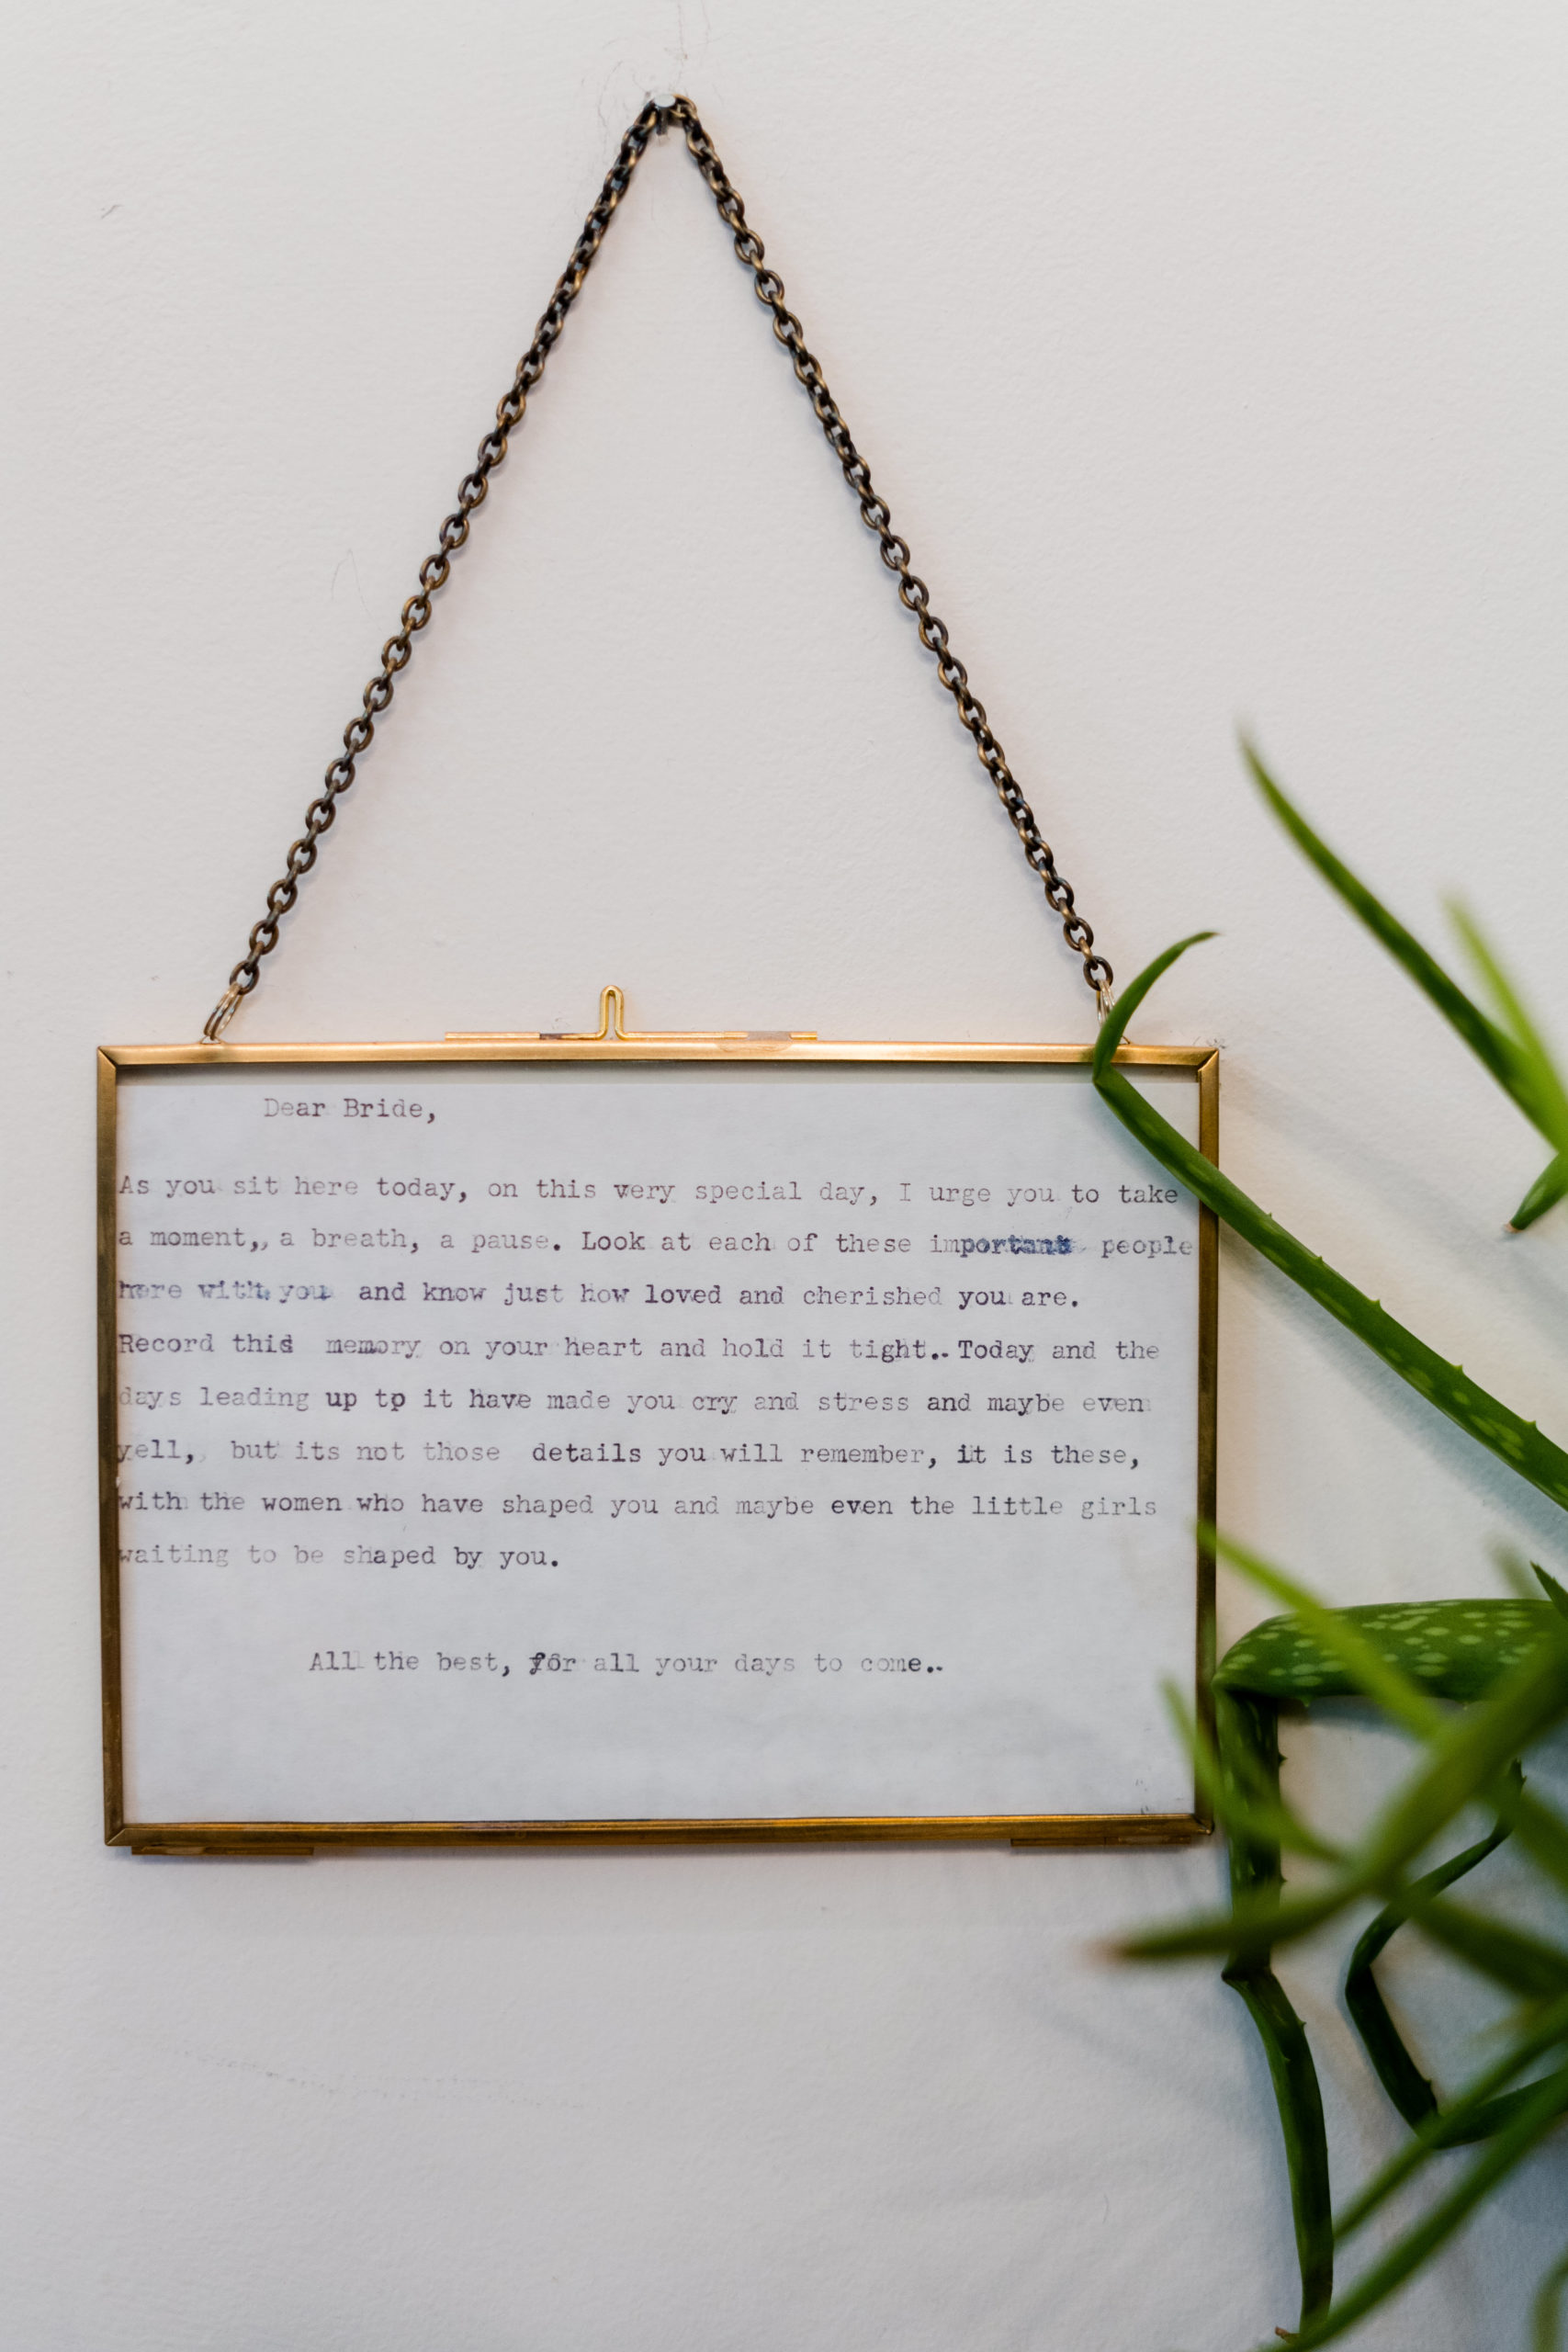 Dear Bride,
As you sit here today, on this very special day, I urge you to take
a moment,, a breath, a pause. Look at each of these important people
here with you and know just how loved and cherished you are.
Record this memory on your heart and hold it tight.. Today and the
days leading up to it have made you cry and stress and maybe even
yell, but its not those details you will remember, it is these,
with the women who have shaped you and maybe even the little girls
waiting to be shaped by you.
All the best, for all your days to come..